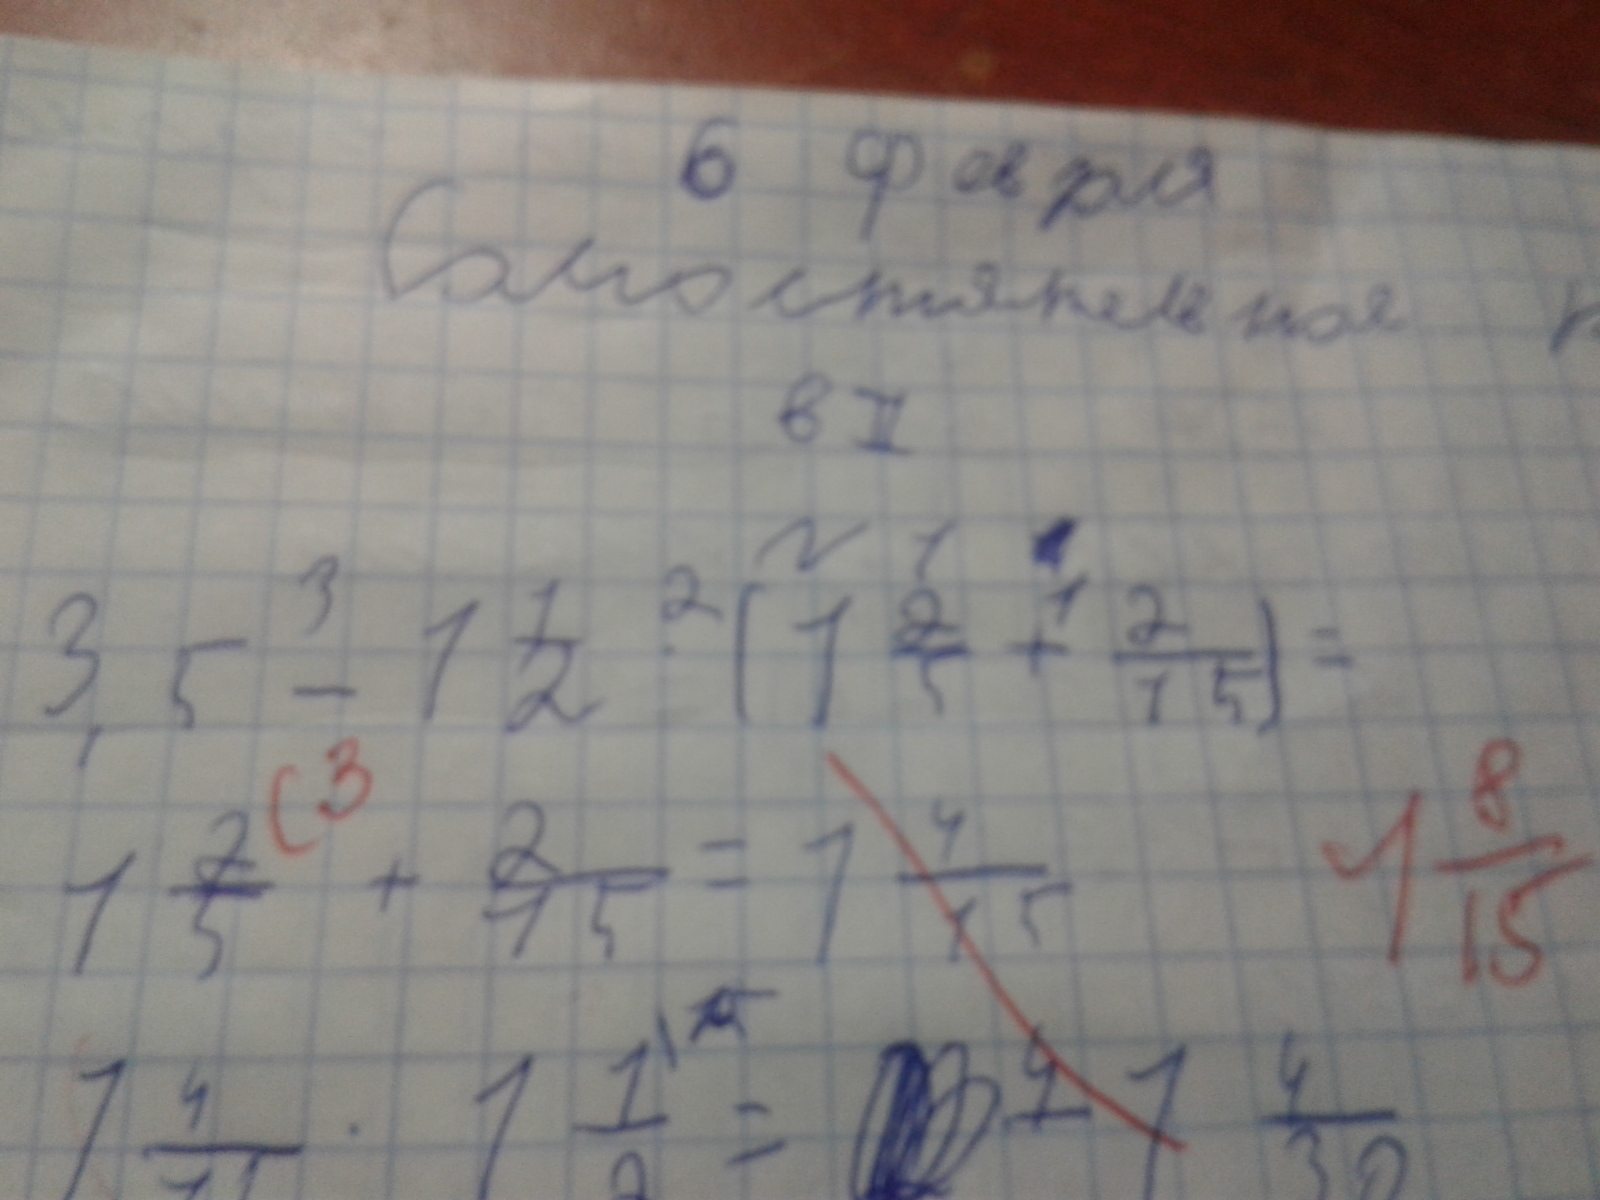 6 февраля
Самостоятельная
в I
3,5 - 1 1/2 · (1 2/5 + 2/15) =
3 2 1 1
1 2/5 (3 + 2/15 = 1 4/15 1 8/15
1 4/15 · 1 1/2 = 4 1 4/30